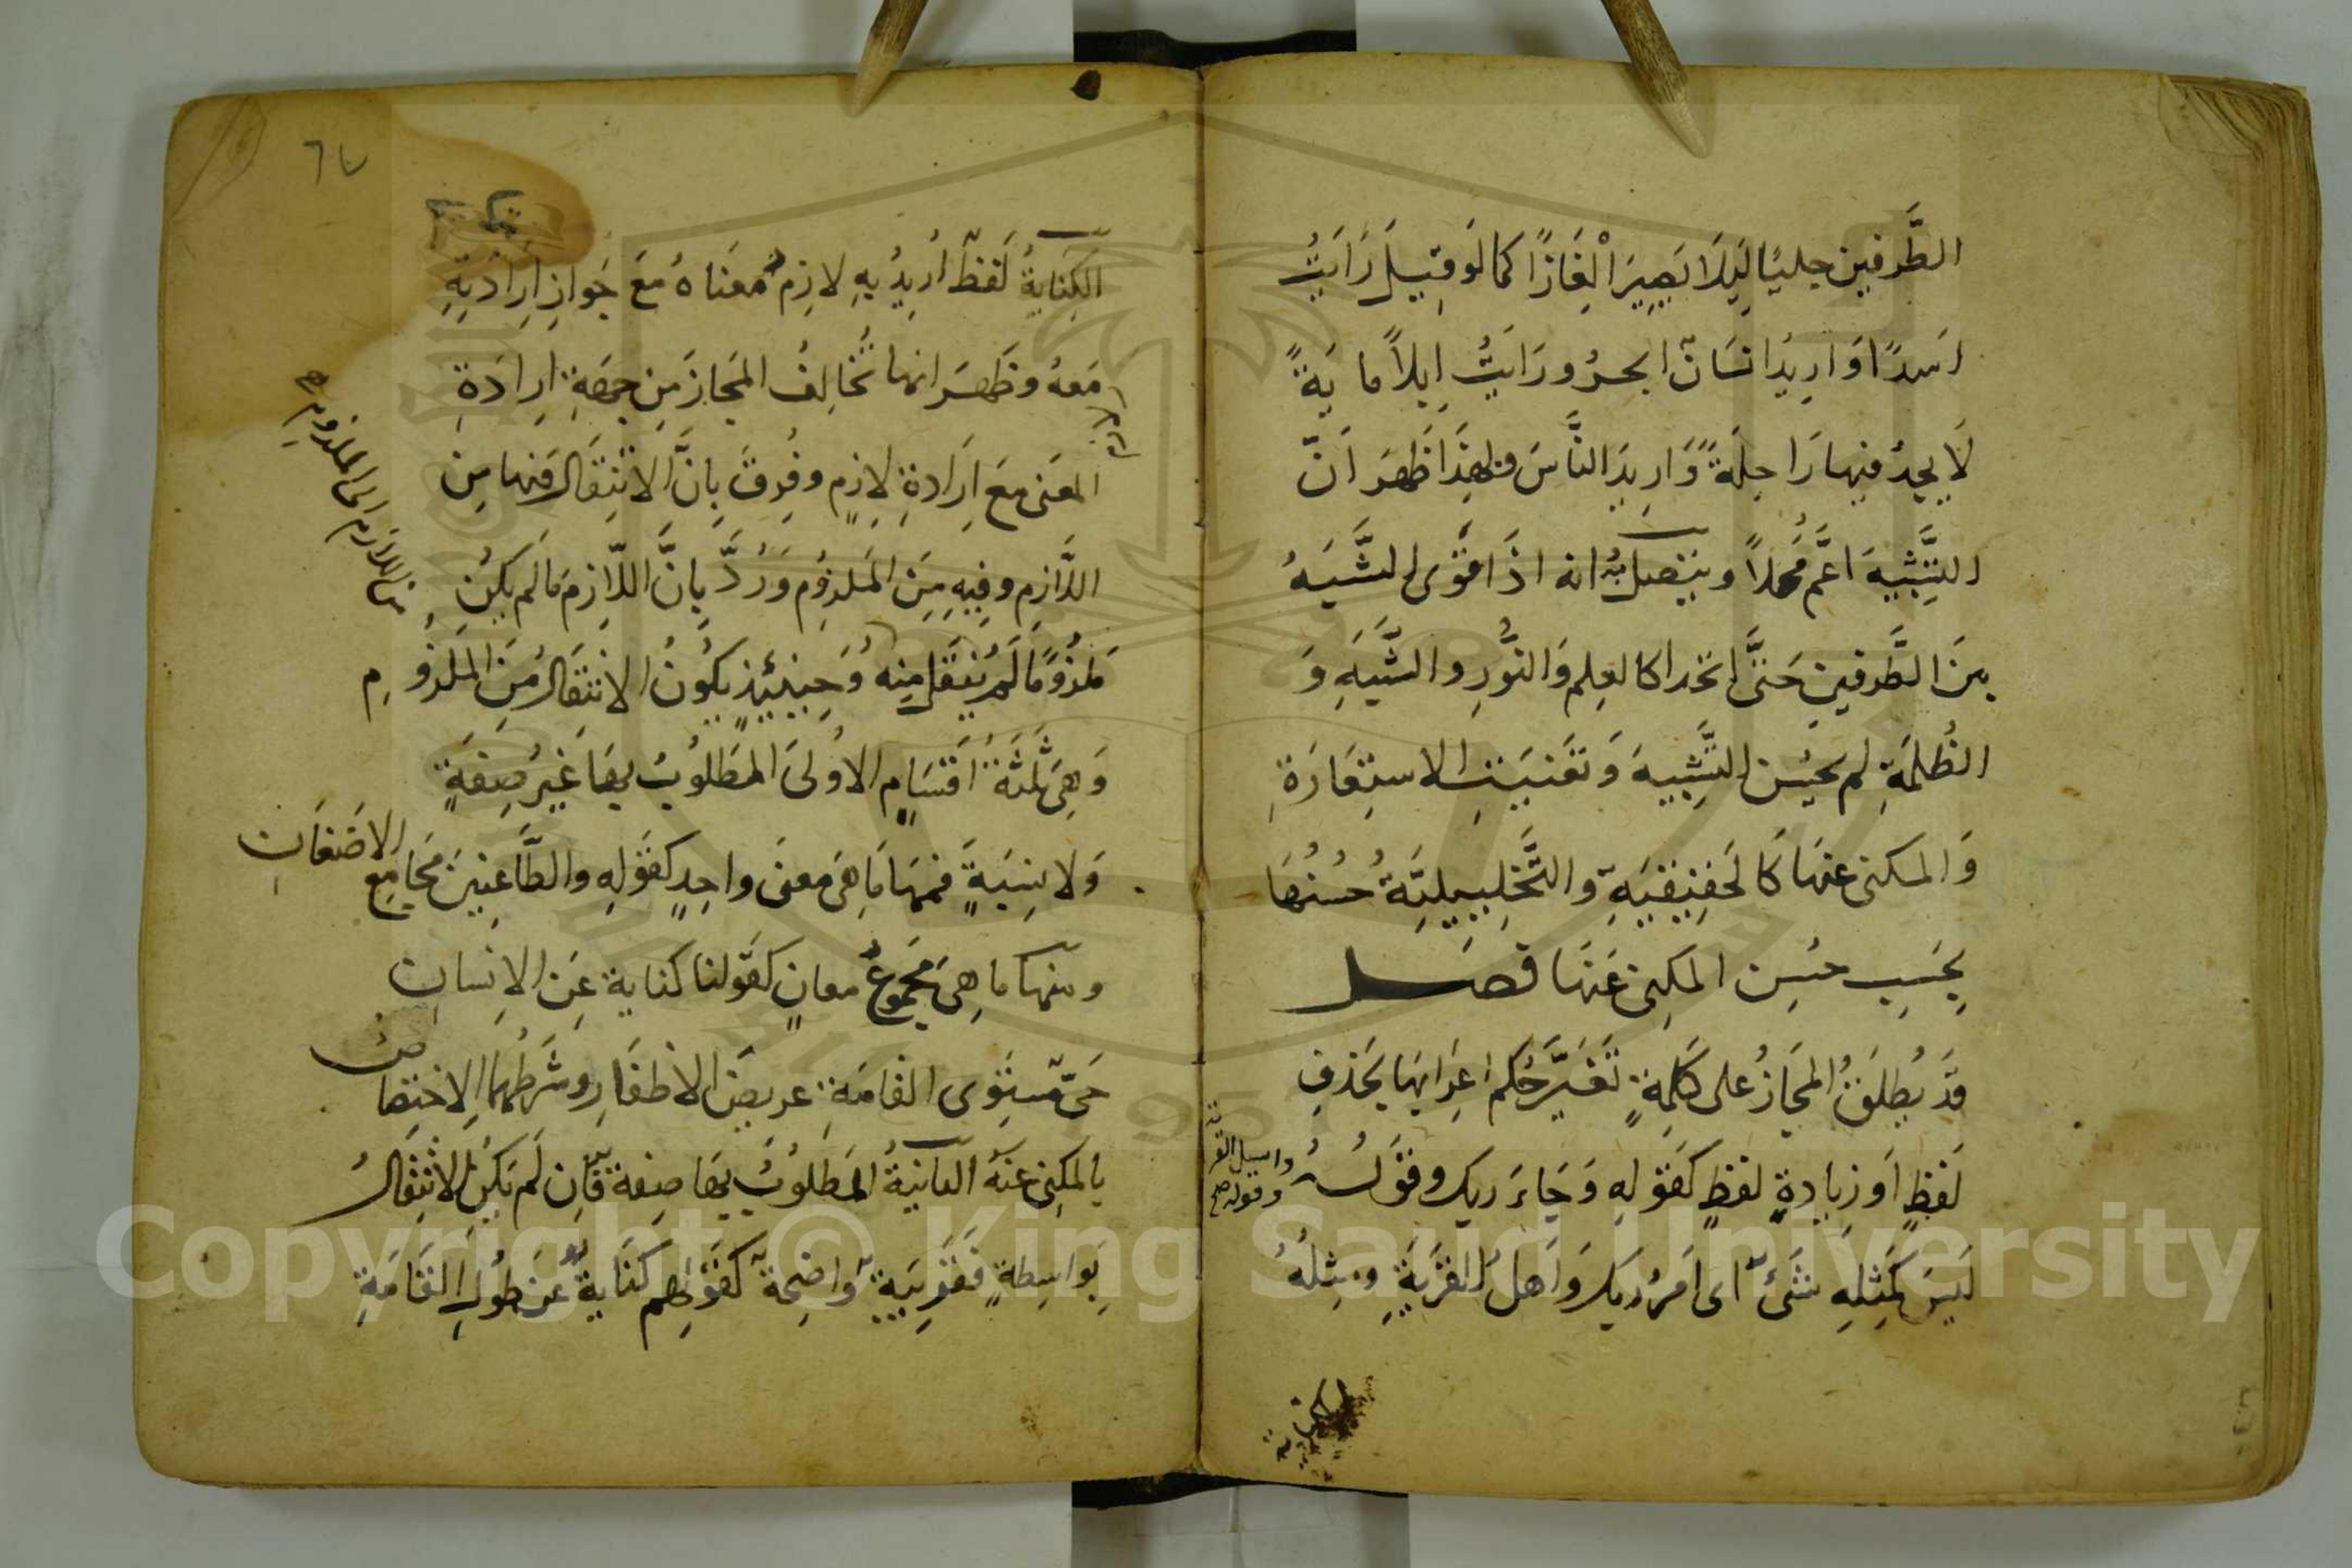 الطَّرفين جليًا لِيَلَا يَصِيرَ الْغَازًا كما لَو قِيلَ رَايَتُ
اسَدًا وَ ارِيدُ انسَان ابحرُ ورَايَتُ اِبلاً مايَةً
لَا يجدُ فيها رَاحِلَةً وَ ارِيدَ النَّاسَ وبهذَا ظهرَ اَنّ
التَّشِبيهَ اعَمُّ محلاً ويتصلُ به انه اذَا قَوى الشَّبَهُ
بينَ الطَّرفينِ حَتَّى اتحدا كالعِلم وَالنُّورِ والشُّبَهِ وَ
الظُلمَةِ لم يحسُن التَّشِبيهَ وَ تعَيَنَتِ الاستِعَارَةِ
وَ المكنى عنهَا كَالحقِيقيَةِ والتَّخيِيليَةُ حُسنُهَا
بِحَسبِ حسُنِ المكنِى عَنَهَا فصَــل
قَد يُطلَقُ المجَازُ على كَلِمَةٍ تَغيَّرَ حُكم اعِرَابِهَا بحَذفِ
لَفظٍ اَو زيادةِ لفظٍ كَقَولِهِ وَجَاءَ ربك وقَولــه
واسيل القرية
وقوله صح
لَيسَ كَمِثلِهِ شئٌ اى امَرُ ربك وَاهلَ القَريَةِ ومِثلهُ
٦٤
الكِنايةُ لَفظٌ أرِيدُ بِهِ لازِمُ معَناهُ مَعَ جَوازِ اِرِادَتِهِ
مَعهُ وظَهرَ انها تُخالِفُ المَجازَ مِن جِهَةِ اِرِادَةِ
المعَنى مَعَ اِرَادةِ لازمِهِ وفُرِقَ بِانَّ الانتِقَالَ فيها مِن
اللَّازِمِ وفِيهِ مِنَ المَلزوُمِ وَرُدَّ بِانَّ اللّازِمَ مَا لَم يكنُ
من اللازم الى الملزوم
مَلزُومًا لَم يُنتَقَل مِنه وَحِينَئِذٍ يكوُنُ الانتِقَالُ مِنَ المَلزُومِ
وَهِىَ ثَلثَةُ اقسَامٍ الاوُلىَ المطَلوُبُ بهَا غَيرُ صِفَةٍ
وَلا نِسَبةٍ فمنهَا مَا هِىَ معنىً واحِدٍ كقوَلِهِ والطَّاعِنيِنَ مجَامِعَ الاضَغَانِ
ومنها ما هِىَ مجَموُعُ معانٍ كقَولنا كناية عَن الاِنسانِ
حَىّ مُستَوِى القَامَةِ عريضُ الاظفَارِ وشَرطُهما الاِختِصَاصُ
بالمكنِى عَنهُ الثانيَةُ المَطلوُبُ بهَا صِفة فَان لَم يَكنُ الانتِقَالُ
بِوَاسِطةٍ فقَرِيبَةٌ وَاضِحةٌ كَقَولهِم كنَايةٌ عَن طوُلِ القَامَةِ
Copyright © King Saud University
1957